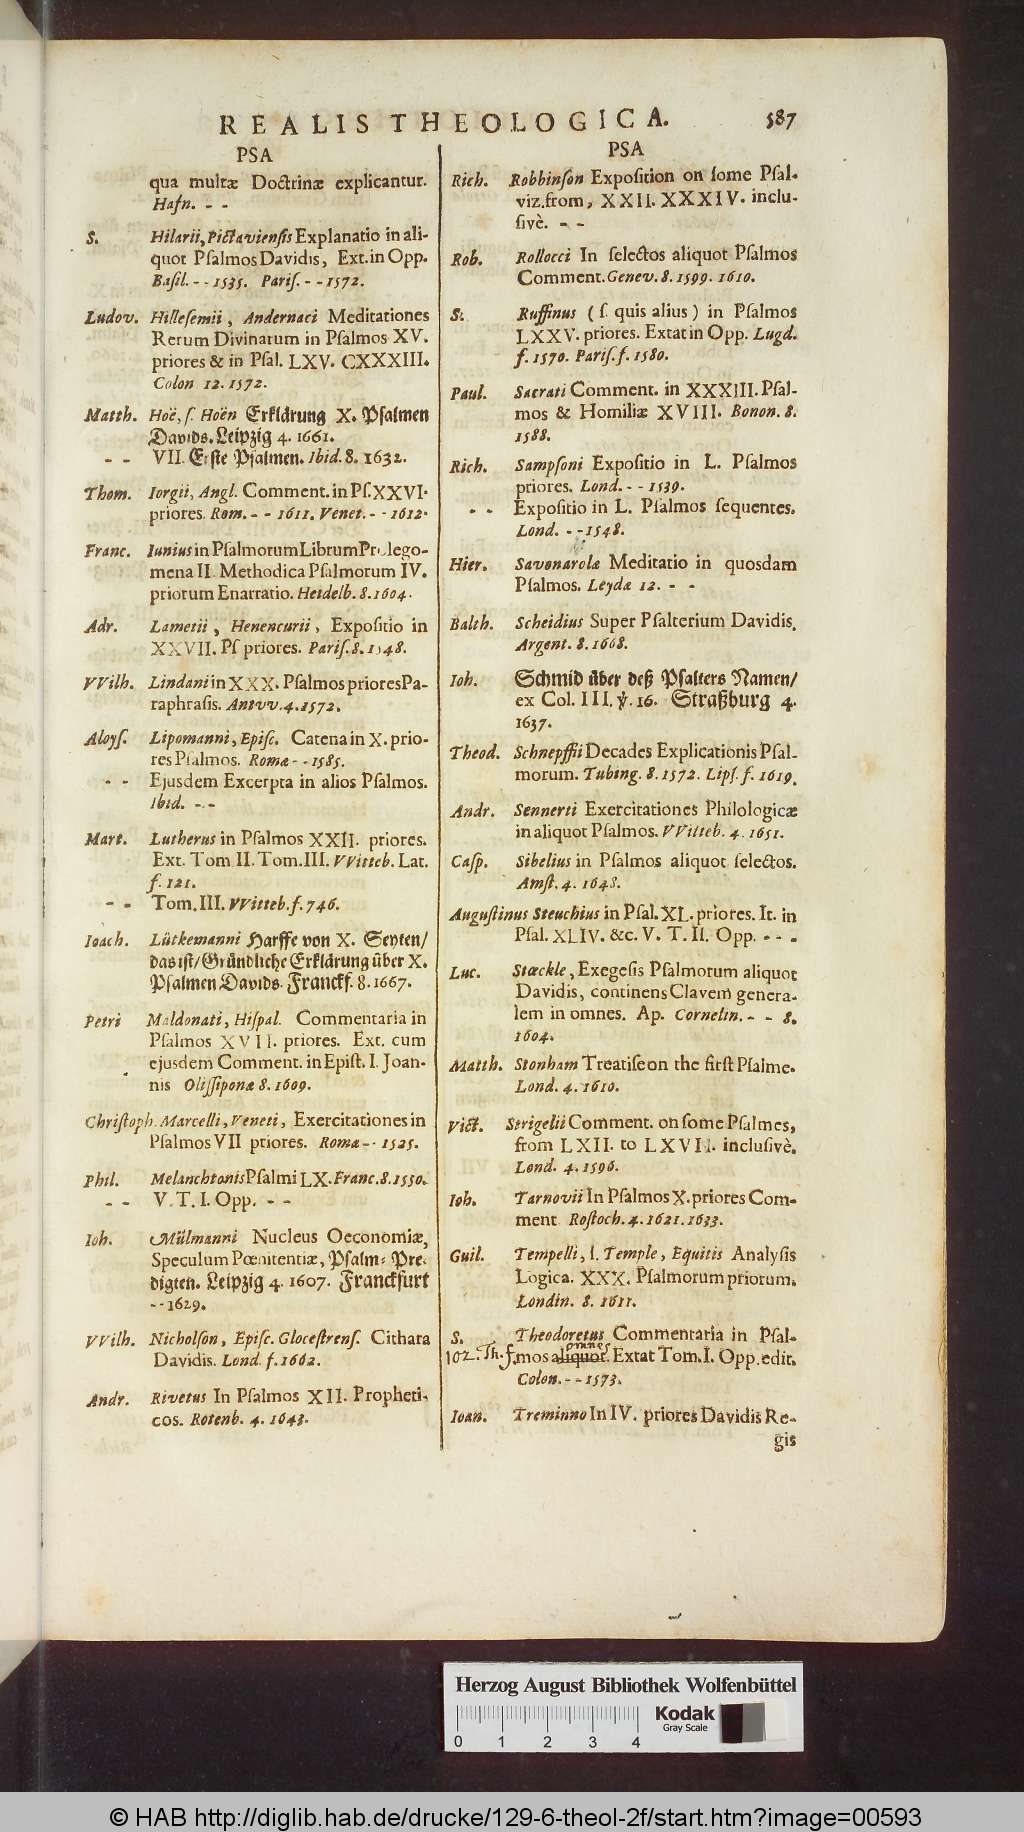 REALIS THEOLOGICA. 587
PSA
qua multæ Doctrinæ explicantur.
Hafn. - -
S. Hilarii, Pictaviensis Explanatio in ali-
quot Psalmos Davidis, Ext. in Opp.
Basil. - - 1535. Paris. - - 1572.
Ludov. Hillesemii, Andernaci Meditationes
Rerum Divinarum in Psalmos XV.
priores & in Psal. LXV. CXXXIII.
Colon 12. 1572.
Matth. Hoë, s. Hoën Erklärung X. Psalmen
Davids. Leipzig 4. 1661.
- - VII. Erste Psalmen. Ibid. 8. 1632.
Thom. Iorgii, Angl. Comment. in Ps. XXVI.
priores. Rom. - - 1611. Venet. - - 1612.
Franc. Iunius in Psalmorum Librum Prolego-
mena II Methodica Psalmorum IV.
priorum Enarratio. Heidelb. 8. 1604.
Adr. Lametii, Henencurii, Expositio in
XXVII. Ps priores. Paris. 8. 1548.
VVilh. Lindani in XXX. Psalmos priores Pa-
raphrasis. Antvv. 4. 1572.
Aloys. Lipomanni, Episc. Catena in X. prio-
res Psalmos. Romæ - - 1585.
- - Ejusdem Excerpta in alios Psalmos.
Ibid. - -
Mart. Lutherus in Psalmos XXII. priores.
Ext. Tom II. Tom. III. VVitteb. Lat.
f. 121.
- - Tom. III. VVitteb. f. 746.
Ioach. Lütkemanni Harffe von X. Seyten/
das ist/ Gründliche Erklärung über X.
Psalmen Davids. Franckf. 8. 1667.
Petri Maldonati, Hispal. Commentaria in
Psalmos XVII. priores. Ext. cum
ejusdem Comment. in Epist. I. Joan-
nis Olissiponæ 8. 1609.
Christoph. Marcelli, Veneti, Exercitationes in
Psalmos VII priores. Romæ - - 1525.
Phil. Melanchtonis Psalmi LX. Franc. 8. 1550.
- - V. T. I. Opp. - -
Ioh. Mülmanni Nucleus Oeconomiæ,
Speculum Pœnitentiæ, Psalm-Pre-
digten. Leipzig 4. 1607. Franckfurt
- - 1629.
VVilh. Nicholson, Episc. Glocestrens. Cithara
Davidis. Lond. f. 1662.
Andr. Rivetus In Psalmos XII. Propheti-
cos. Roterb. 4. 1643.
PSA
Rich. Robbinson Exposition on some Psal.
viz. from, XXII. XXXIV. inclu-
sivè. - -
Rob. Rollocci In selectos aliquot Psalmos
Comment. Genev. 8. 1599. 1610.
S. Ruffinus (s. quis alius) in Psalmos
LXXV. priores. Extat in Opp. Lugd.
f. 1570. Paris. f. 1580.
Paul. Sacrati Comment. in XXXIII. Psal-
mos & Homiliæ XVIII. Bonon. 8.
1588.
Rich. Sampsoni Expositio in L. Psalmos
priores. Lond. - - 1539.
- - Expositio in L. Psalmos sequentes.
Lond. - - 1548.
Hier. Savonarolæ Meditatio in quosdam
Psalmos. Leydæ 12. - -
Balth. Scheidius Super Psalterium Davidis.
Argent. 8. 1668.
Ioh. Schmid über deß Psalters Namen/
ex Col. III. ℣. 16. Straßburg 4.
1637.
Theod. Schnepffii Decades Explicationis Psal-
morum. Tubing. 8. 1572. Lips. f. 1619.
Andr. Sennerti Exercitationes Philologicæ
in aliquot Psalmos. VVitteb. 4. 1651.
Casp. Sibelius in Psalmos aliquot selectos.
Amst. 4. 1648.
Augustinus Steuchius in Psal. XL. priores. It. in
Psal. XLIV. &c. V. T. II. Opp. - - -
Luc. Stœckle, Exegesis Psalmorum aliquot
Davidis, continens Clavem genera-
lem in omnes. Ap. Cornelin. - - 8.
1604.
Matth. Stonham Treatise on the first Psalme.
Lond. 4. 1610.
Vict. Strigelii Comment. on some Psalmes,
from LXII. to LXVII. inclusivè.
Lond. 4. 1596.
Ioh. Tarnovii In Psalmos X. priores Com-
ment. Rostoch. 4. 1621. 1633.
Guil. Tempelli, s. Temple, Equitis Analysis
Logica. XXX. Psalmorum priorum.
Londin. 8. 1611.
S. Theodoretus Commentaria in Psal-
omnes
102. Th. f. mos aliquot. Extat Tom. I. Opp. edit.
Colon. - - 1573.
Ioan. Treminno In IV. priores Davidis Re-
gis
Herzog August Bibliothek Wolfenbüttel
Kodak
Gray Scale
0 1 2 3 4
© HAB http://diglib.hab.de/drucke/129-6-theol-2f/start.htm?image=00593